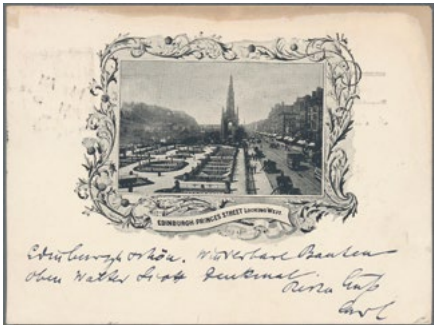 EDINBURGH PRINCES STREET LOOKING WEST
Edinburgh schön. Wunderbare Bauten
oben Walter Scott Denkmal
Carl